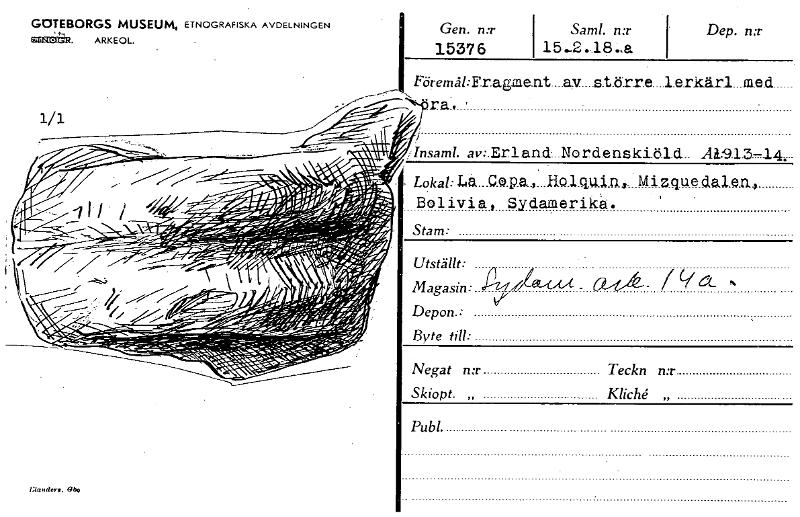 GÖTEBORGS MUSEUM, ETNOGRAFISKA AVDELNINGEN
ETNOGR. ARKEOL.
1/1
Elanders, Gbg
Gen. n:r Saml. n:r Dep. n:r
15376 15.2.18.a
Föremål: Fragment av större lerkärl med
öra.
Insaml. av: Erland Nordenskiöld År 1913-14.
Lokal: La Copa, Holquin, Mizquedalen,
Bolivia, Sydamerika.
Stam:
Utställt:
Magasin: Sydam. ark. 14a.
Depon.:
Byte till:
Negat n:r Teckn n:r
Skiopt. „ Kliché „
Publ.